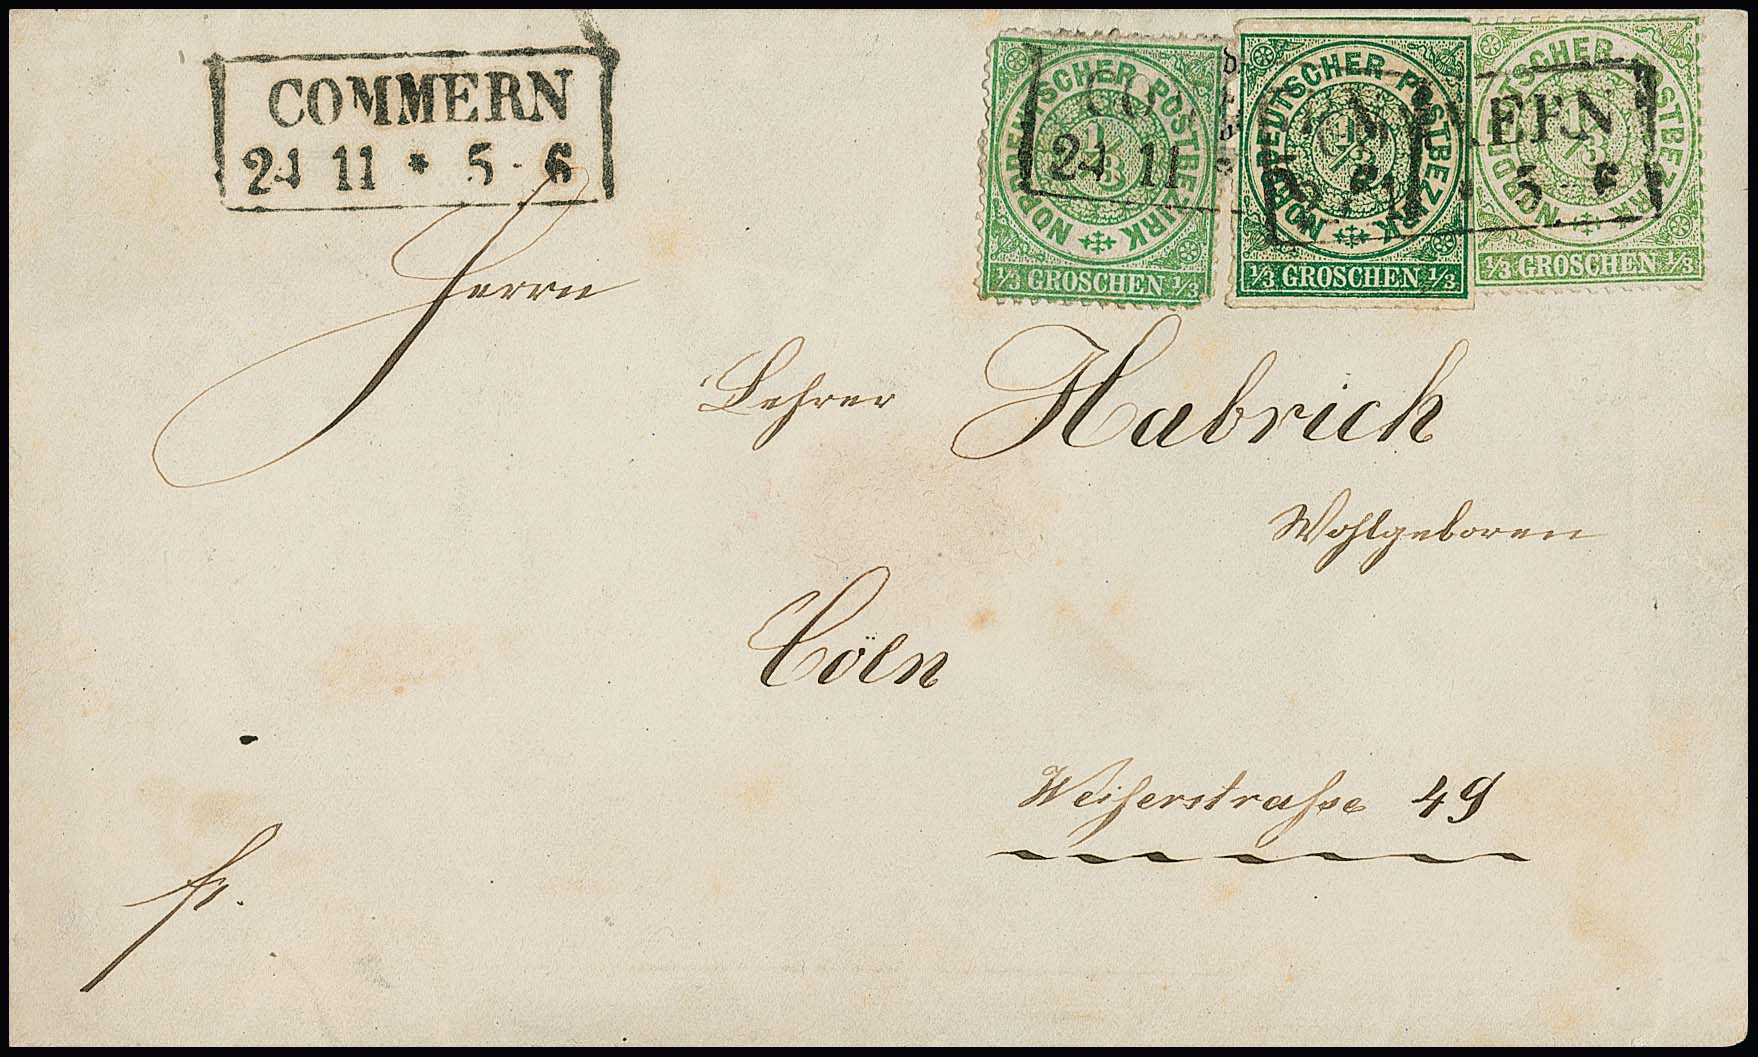 COMMERN
24 11 * 5-6
NORDDEUTSCHER POSTBEZIRK
1/3
1/3 GROSCHEN 1/3
NORDDEUTSCHER POSTBEZIRK
1/3
1/3 GROSCHEN 1/3
NORDDEUTSCHER POSTBEZIRK
1/3
1/3 GROSCHEN 1/3
24 11
Herrn
Lehrer Habrich
Wohlgeboren
Cöln
Weiherstraße 49
fr.